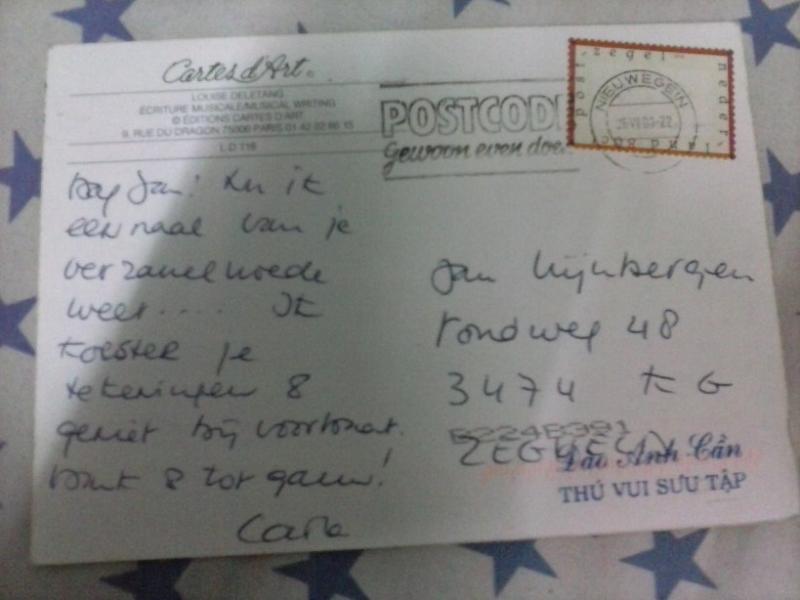 Cartes d'Art
LOUISE DELETANG
ÉCRITURE MUSICALE/MUSICAL WRITING
© ÉDITIONS CARTES D'ART
9, RUE DU DRAGON 75006 PARIS 01 42 22 86 15
L D 116
POSTCODE
Gewoon even doen
post zegel neder land 80
NIEUWEGEIN
Dag Jan! Nu ik
eenmaal van je
verzamelwoede
weet.... Ik
koester je
tekeningen &
geniet bij voorbaat.
Dank & tot gauw!
Carla
Jan
rondweg 48
3474 KG
ZEGVELD
Đào Anh Cần
THÚ VUI SƯU TẬP